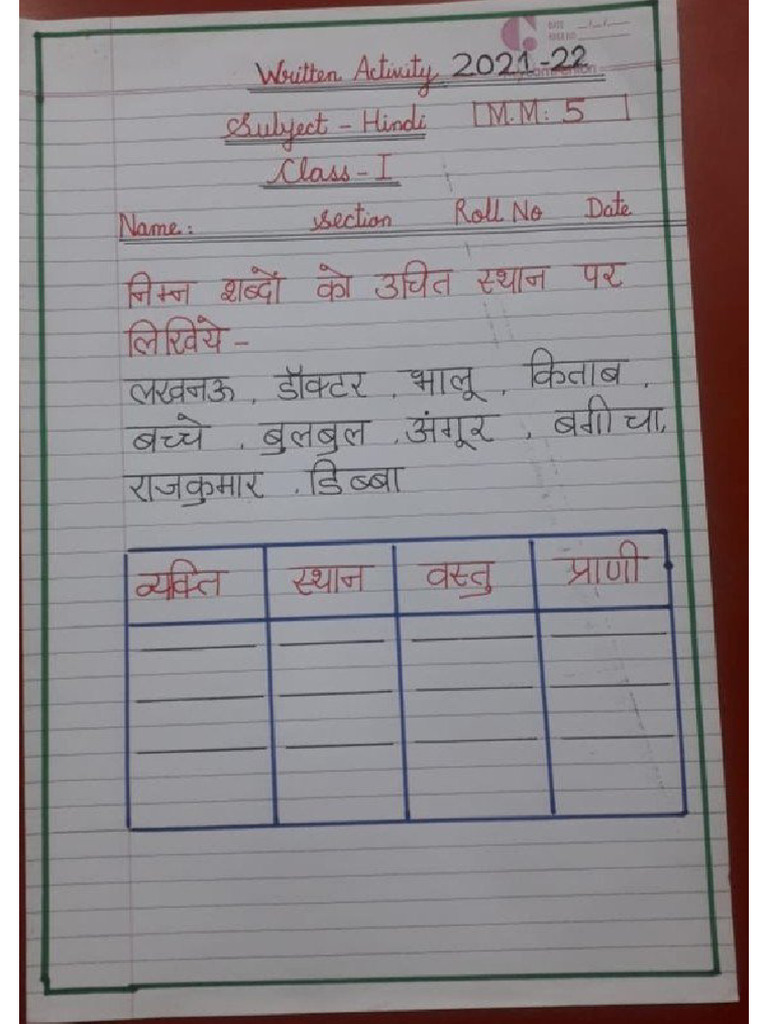 Written Activity 2021-22
Subject - Hindi M.M: 5
Class - I
Name: Section Roll No Date
निम्न शब्दों को उचित स्थान पर
लिखिये -
लखनऊ, डॉक्टर, भालू, किताब,
बच्चे, बुलबुल, अंगूर, बगीचा,
राजकुमार, डिब्बा
व्यक्ति स्थान वस्तु प्राणी